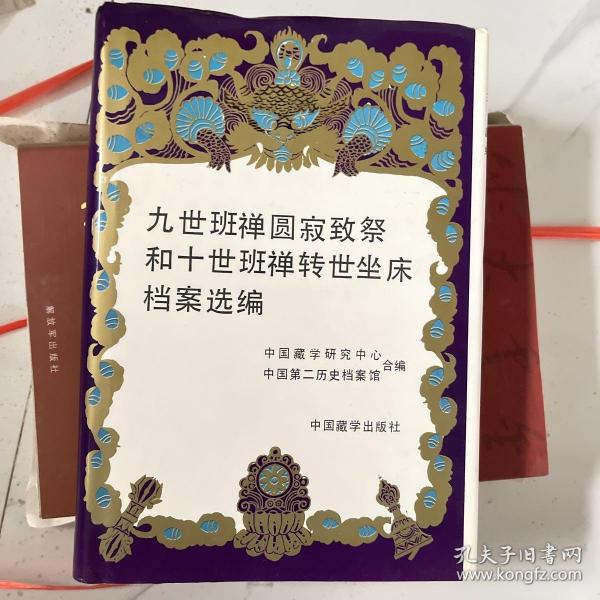 九世班禅圆寂致祭
和十世班禅转世坐床
档案选编
中国藏学研究中心
中国第二历史档案馆
合编
中国藏学出版社
解放军出版社
孔夫子旧书网
www.kongfz.com